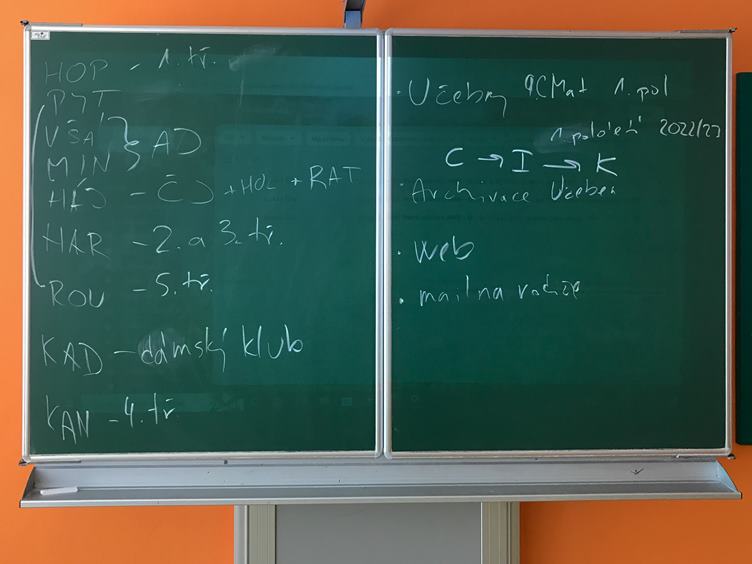 HOP - 1. tř.
PYT
VŠA
MIN } AD
HÁJ - ČJ + HOL + RAT
HAR - 2. a 3. tř.
ROU - 5. tř.
KAD - dámský klub
KAN - 4. tř.
· Učebny 9.CMat 1. pol
1. pololetí 2022/23
C → I → K
· Archivace Učeben
· web
· mail na rodiče